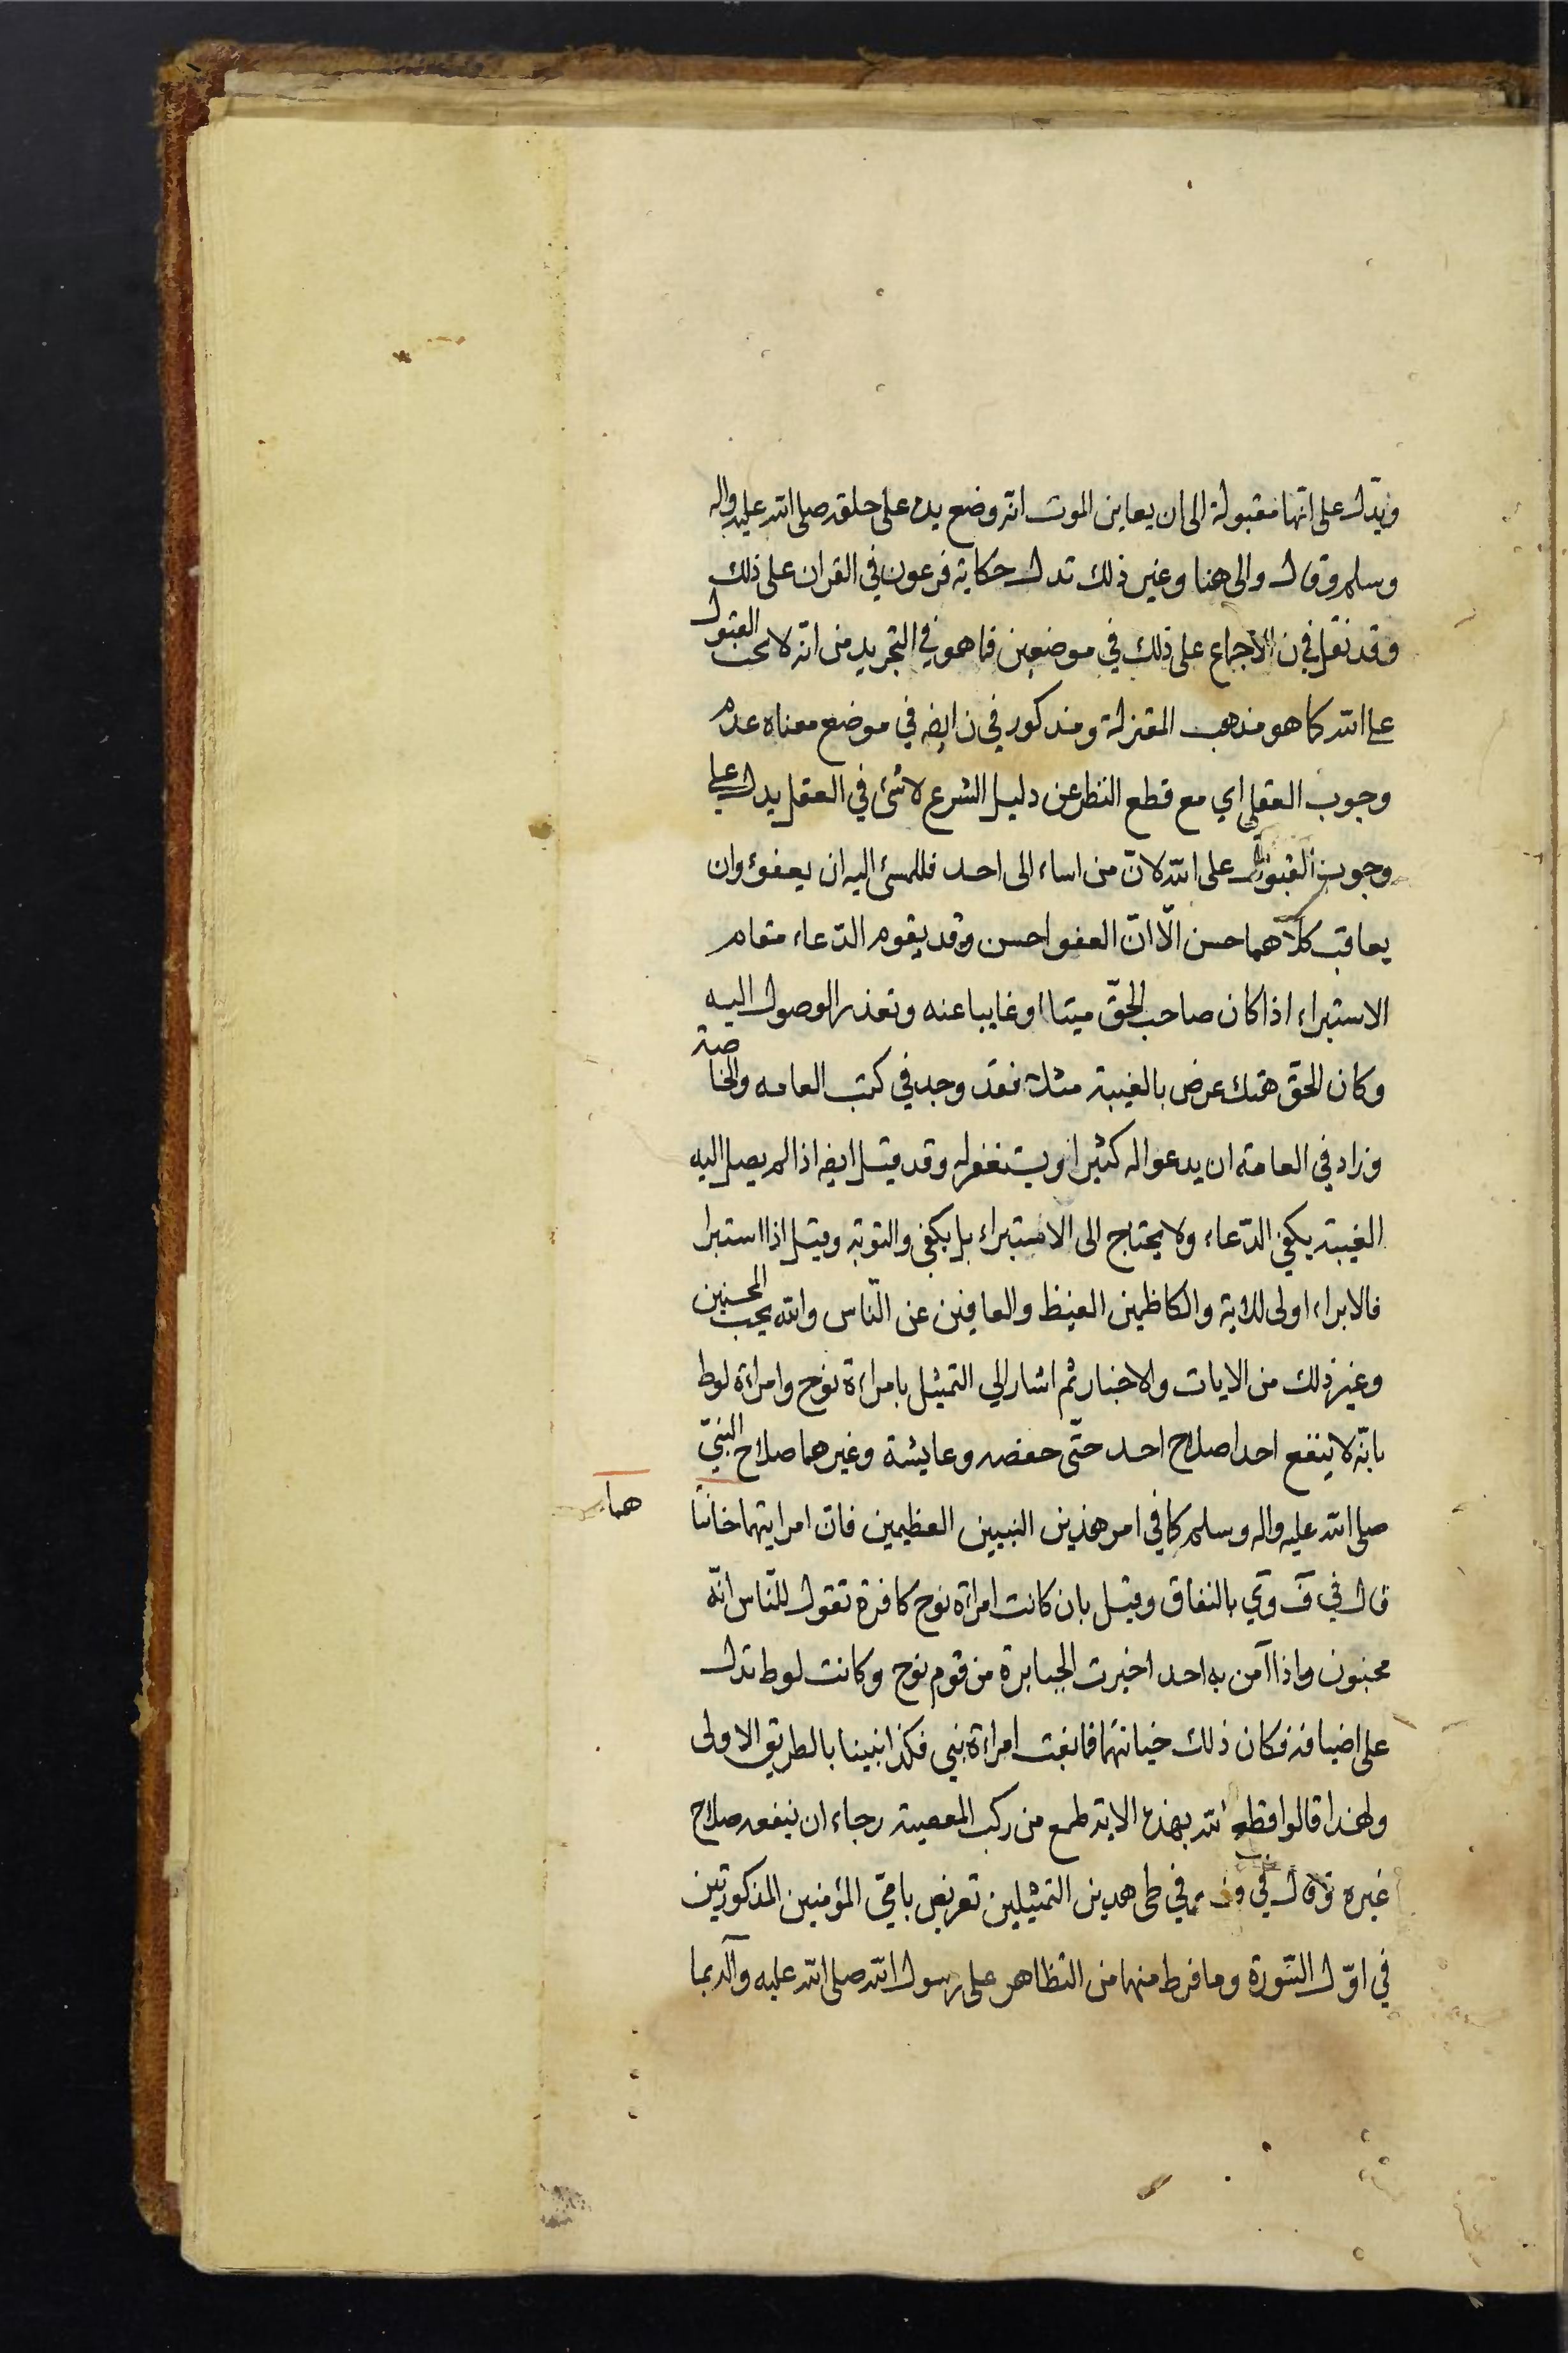 ويدّل على انّها مقبولة الى ان يعاين الموت انّه وضع يده على حلقه صلى الله عليه واله
وسلم وقال والى هنا وغير ذلك تدل حكاية فرعون في القران على ذلك
وقد نقل في ن الاجماع على ذلك في موضعين فما هو في التجريد من انّه لا يجب القبول
على الله كما هو مذهب المعتزلة ومذكور في ن ايضه في موضع معناه عدم
وجوب العقلي اي مع قطع النظر عن دليل الشرع لاشئ في العقل يدل على
وجوب القبول على الله لانّ من اساء الى احد فللمسئ اليه ان يعفو وان
يعاقب كلاهما حسن الّا انّ العفو احسن وقد يقوم الدّعاء مقام
الاستبراء اذا كان صاحب الحقّ ميتا او غايبا عنه وتعذر الوصول اليه
وكان الحق هتك عرض بالغيبة مثلا فقد وجد في كتب العامه والخاصة
وزاد في العامة ان يدعو اله كثيرا ويستغفر له وقد قيل ايضه اذا لم يصل اليه
الغيبة يكفي الدّعاء ولا يحتاج الى الاستبراء بل يكفي والتوبة وقيل اذا استبرا
فالابراء اولى للاية والكاظمين الغيظ والعافين عن النّاس والله يحب المحسنين
وغير ذلك من الايات والاخبار ثم اشار الي التمثيل بامراءة نوح وامراءة لوط
بانّه لا ينفع احدا صلاح احد حتّى حفصه وعايشة وغيرهما صلاح النبيّ
صلى الله عليه واله وسلم كما في امر هذين النبيين العظيمين فان امرايتهما خانتا
هما
قال في ق وي بالنفاق وقيل بان كانت امراءة نوح كافرة تقول للنّاس انّه
مجنون واذا آمن به احد اخبرت الجبابرة من قوم نوح وكانت لوط تدل
على اضيافه فكان ذلك خيانتهما فما بغت امراءة نبي فكذا نبينا بالطريق الاولى
ولهذا قالوا فقطع الله بهذه الاية طمع من ركب المعصية رجاء ان ينفعه صلاح
غيره وقال في في طي هدين التمثيلين تعريض بامّي المؤمنين المذكورتين
في اوّل السّورة وما فرط منهما من التظاهر على رسول الله صلى الله عليه وآله بما